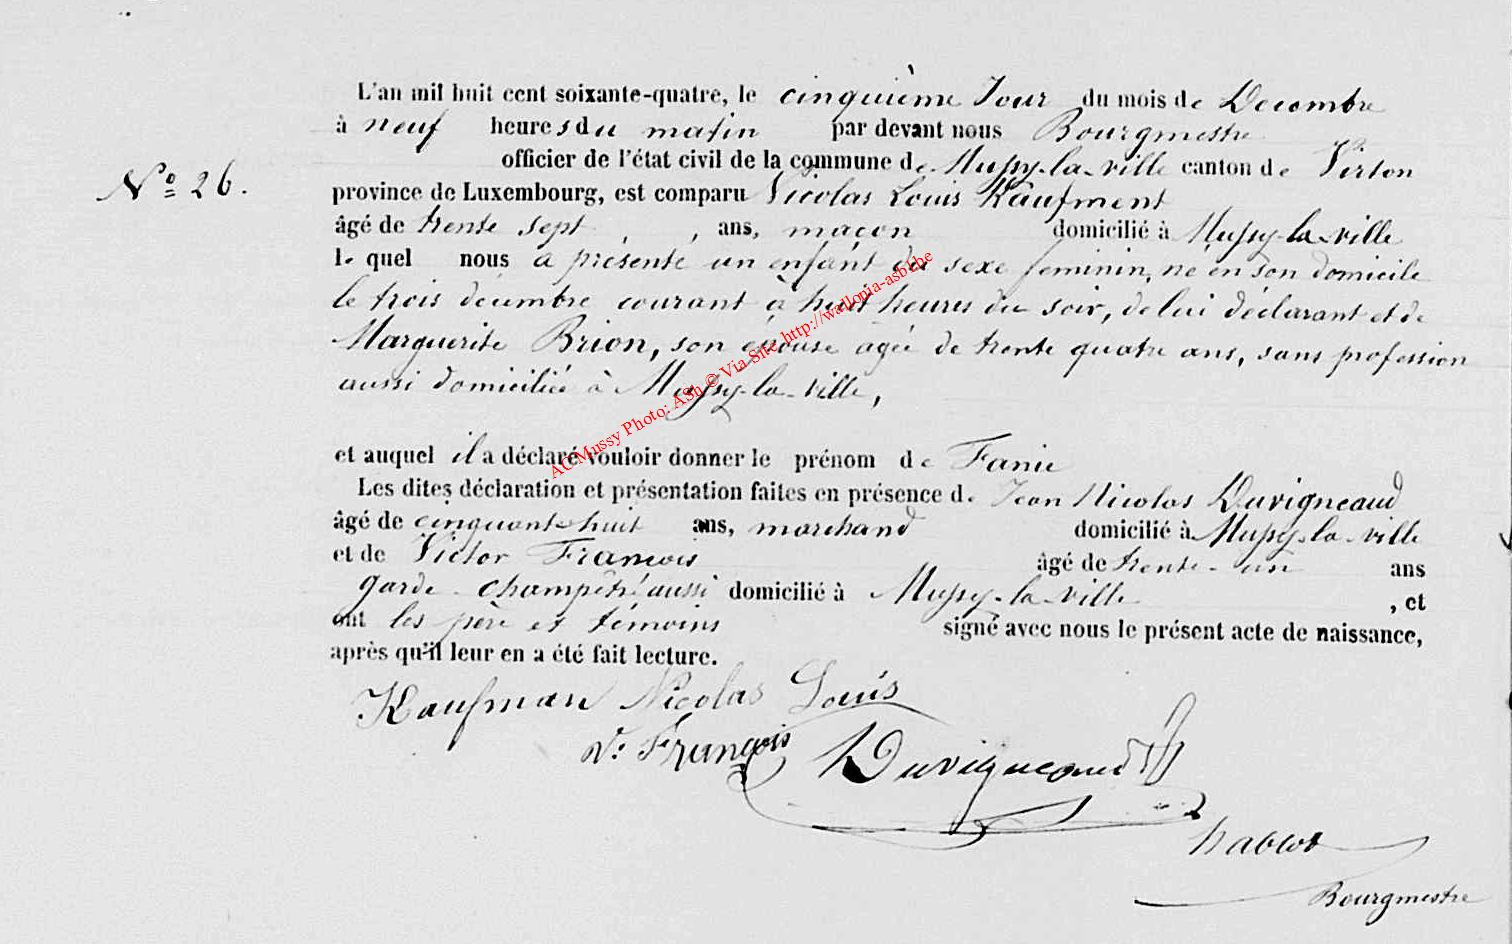 L'an mil huit cent soixante-quatre, le cinquième Jour du mois de Decembre
à neuf heures du matin par devant nous Bourgmestre
officier de l'état civil de la commune de Mussy-la-ville canton de Virton
N° 26.
province de Luxembourg, est comparu Nicolas Louis Kaufment
âgé de trente sept, ans, maçon domicilié à Mussy-la-ville
le quel nous a présenté un enfant du sexe feminin, né en son domicile
le trois décembre courant à huit heures du soir, de lui déclarant et de
Marguerite Brion, son épouse agée de trente quatre ans, sans profession
aussi domiciliée à Mussy-la-ville,
AC Mussy Photo: ASh © Via Site http://wallonia-asbl.be
et auquel il a déclaré vouloir donner le prénom de Fanie
Les dites déclaration et présentation faites en présence de Jean Nicolas Duvigneaud
âgé de cinquante huit ans, marchand domicilié à Mussy-la-ville
et de Victor François âgé de trente-un ans
garde-champêtre aussi domicilié à Mussy-la-ville, et
ont les père et témoins signé avec nous le présent acte de naissance,
après qu'il leur en a été fait lecture.
Kaufman Nicolas Louis
V. François Duvigneaud
Bourgmestre